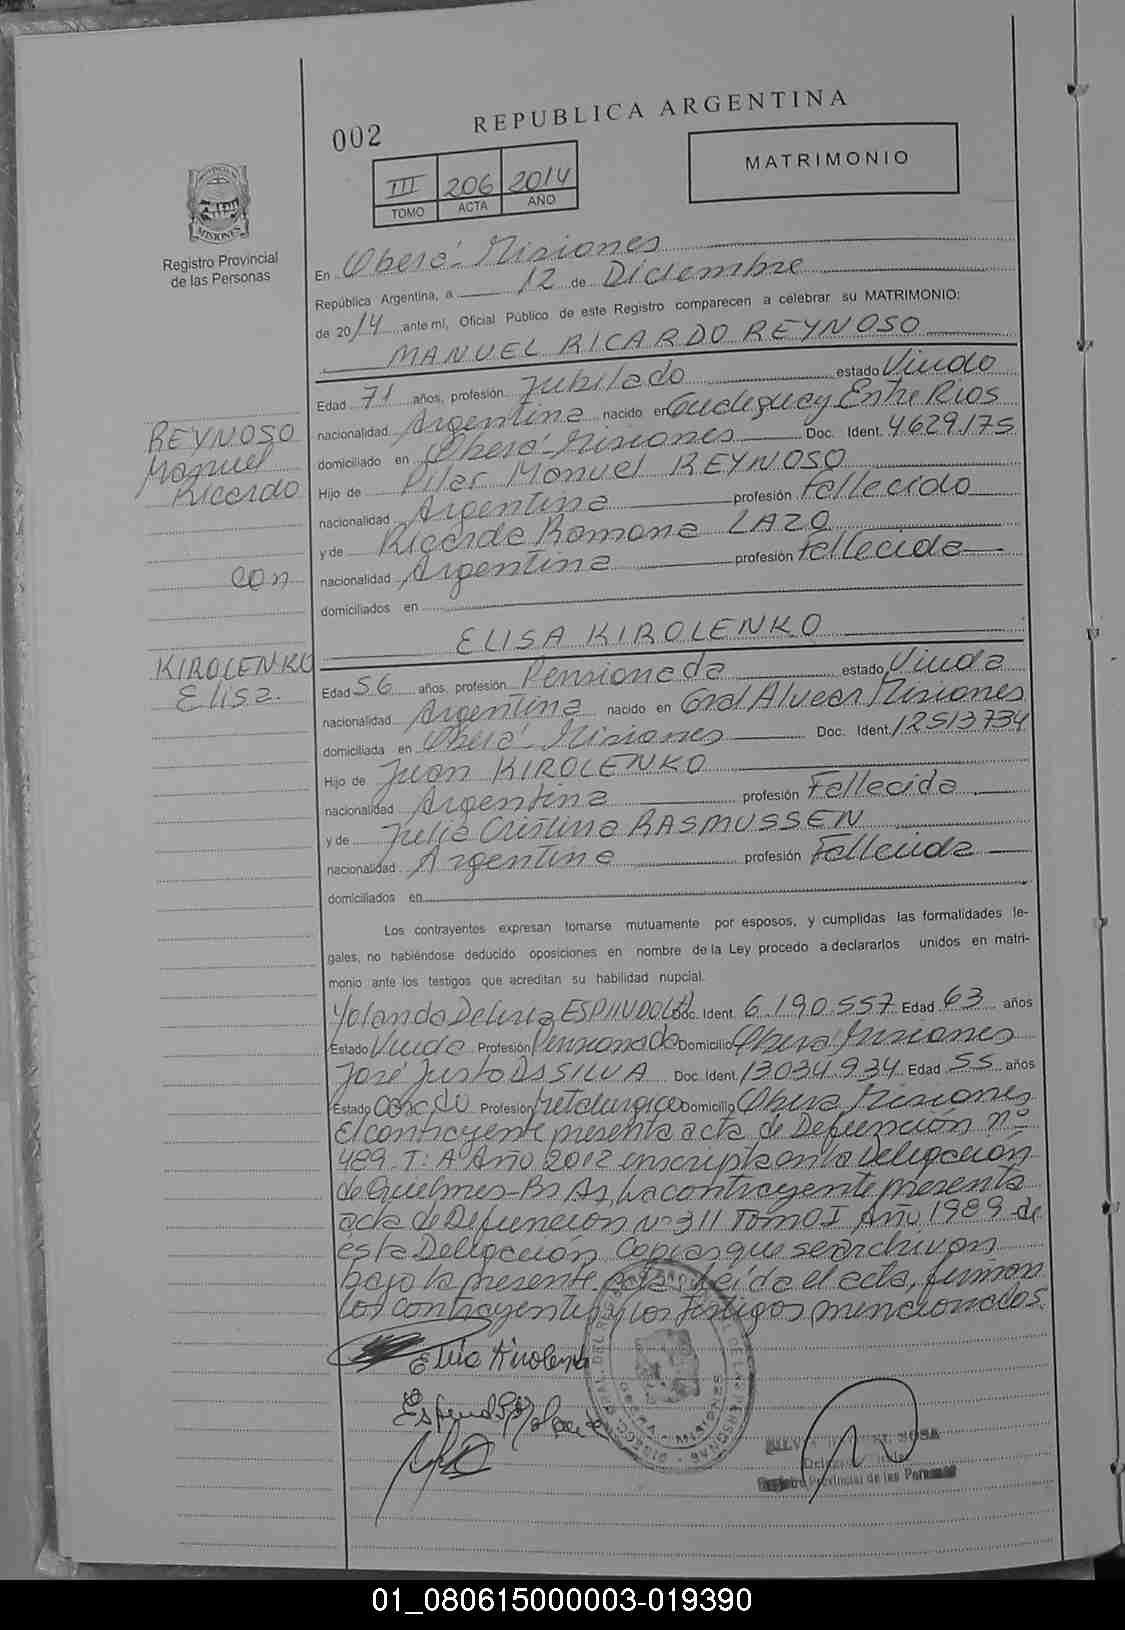 002
REPUBLICA ARGENTINA
MATRIMONIO
III 206 2014
TOMO ACTA AÑO
MISIONES
Registro Provincial
de las Personas
En Oberá - Misiones
República Argentina, a 12 de Diciembre
de 2014 ante mí, Oficial Público de este Registro comparecen a celebrar su MATRIMONIO:
MANUEL RICARDO REYNOSO
Edad 71 años, profesión Jubilado estado Viudo
nacionalidad Argentina nacido en Gualeguay Entre Rios
domiciliado en Oberá - Misiones Doc. Ident. 4629.175
Hijo de Pilar Manuel REYNOSO
nacionalidad Argentina profesión Fallecido
y de Ricarda Ramona LAZO
nacionalidad Argentina profesión Fallecida
domiciliados en
REYNOSO
Manuel
Ricardo
con
KIROLENKO
Elisa.
ELISA KIROLENKO
Edad 56 años, profesión Pensionada estado Viuda
nacionalidad Argentina nacido en Gral Alvear Misiones
domiciliada en Oberá - Misiones Doc. Ident. 12513734
Hijo de Juan KIROLENKO
nacionalidad Argentina profesión Fallecida
y de Julia Cristina RASMUSSEN
nacionalidad Argentina profesión Fallecida
domiciliados en
Los contrayentes expresan tomarse mutuamente por esposos, y cumplidas las formalidades le-
gales, no habiéndose deducido oposiciones en nombre de la Ley procedo a declararlos unidos en matri-
monio ante los testigos que acreditan su habilidad nupcial.
Yolanda Delicia ESPINDOLA Doc. Ident. 6.190.557 Edad 63 años
Estado Viuda Profesión Pensionada Domicilio Oberá Misiones
José Justo DA SILVA Doc. Ident. 13034934 Edad 55 años
Estado Casado Profesión Metalurgico Domicilio Oberá Misiones
El contrayente presenta acta de Defunción nº
489 T: A Año 2012 inscripta en la Delegación
de Quilmes - Bs As, La contrayente presenta
acta de Defunción Nº 311 Tomo I Año 1989 de
esta Delegación Copias que se archivan
bajo la presente acta. Leída el acta, firman
los contrayentes y los testigos mencionados.
Registro Provincial de las Personas
01_080615000003-019390